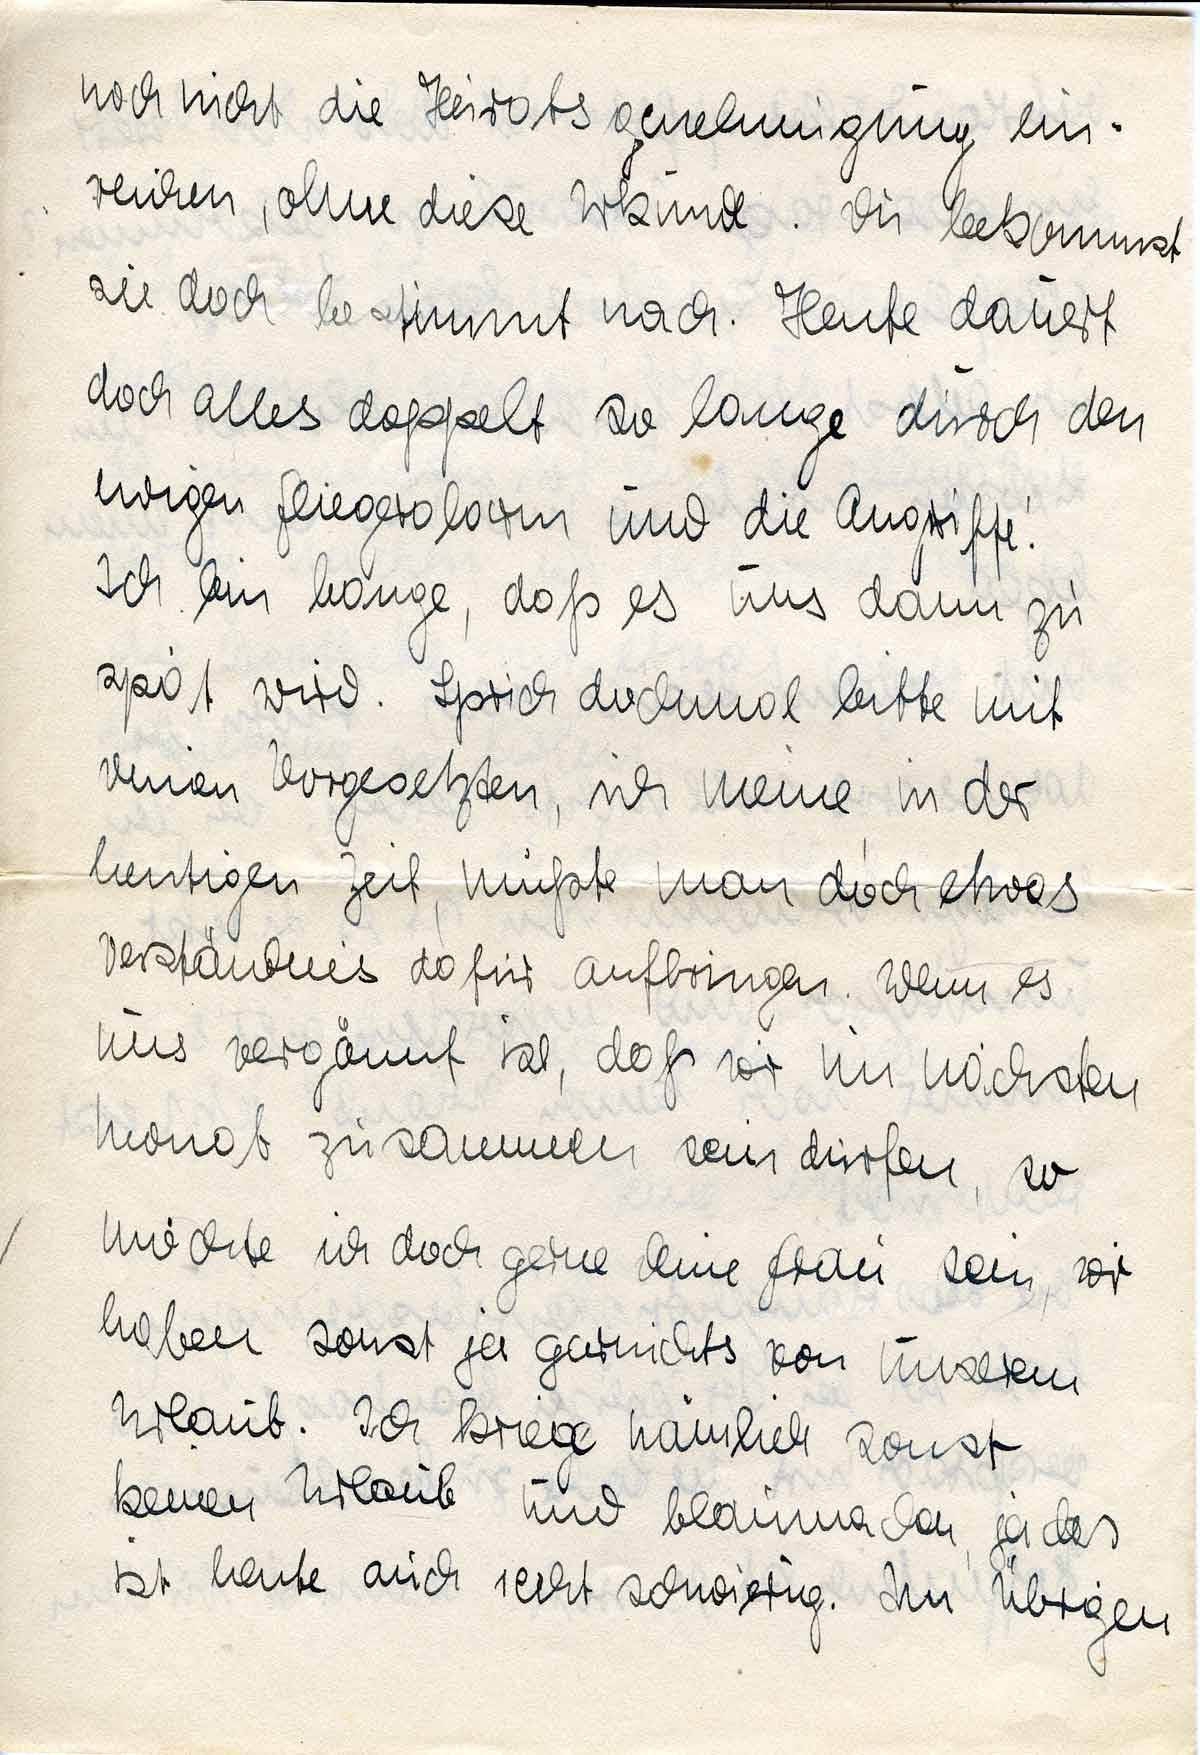 noch nicht die Heiratsgenehmigung ein-
reichen, ohne diese Urkunde. Du bekommst
sie doch bestimmt nach. Heute dauert
doch alles doppelt so lange durch den
ewigen Fliegeralarm und die Angriffe!
Ich bin bange, daß es uns dann zu
spät wird. Sprich dochmal bitte mit
deinen Vorgesetzten, ich meine in der
heutigen Zeit, müßte man doch etwas
Verständnis dafür aufbringen. Wenn es
uns vergönnt ist, daß wir im nächsten
Monat zusammen sein dürfen, so
möchte ich doch gerne deine Frau sein, wir
haben sonst ja garnichts von unserem
Urlaub. Ich kriege nämlich sonst
keinen Urlaub und blaumachen, ja das
ist heute auch recht schwierig. Im Übrigen